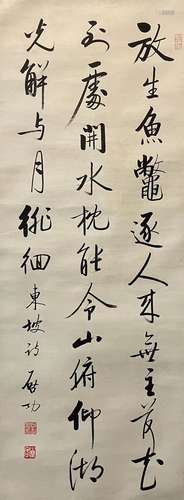 放生魚鼈逐人來無主荷花
到處開水枕能令山俯仰湖
光解与月徘徊 東坡詩 啓功